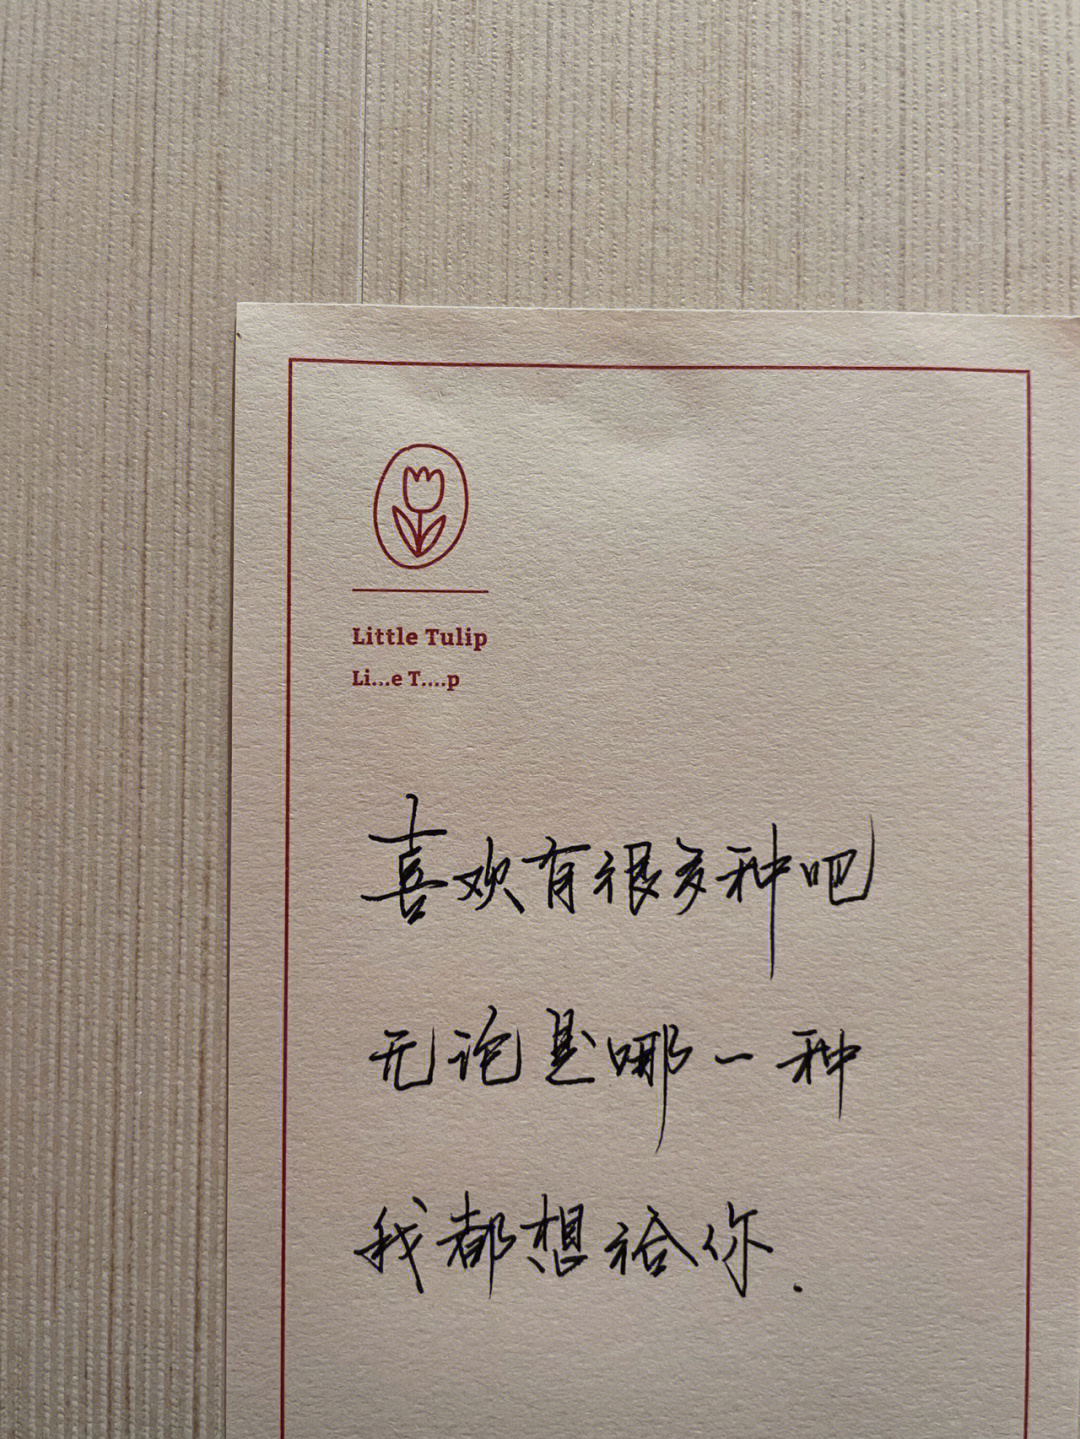 Little Tulip
Li...e T....p
喜欢有很多种吧
无论是哪一种
我都想给你.